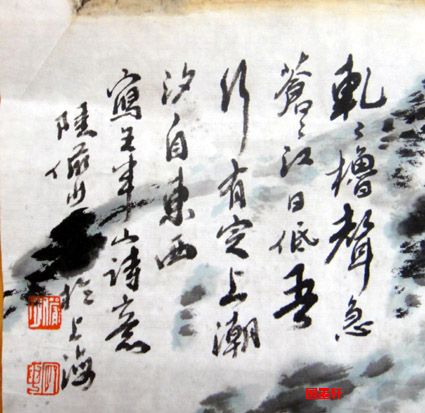 軋〻櫓聲急
蒼〻江日低吾
行有定止潮
汐自東西
寫王半山詩意
陸儼少於上海